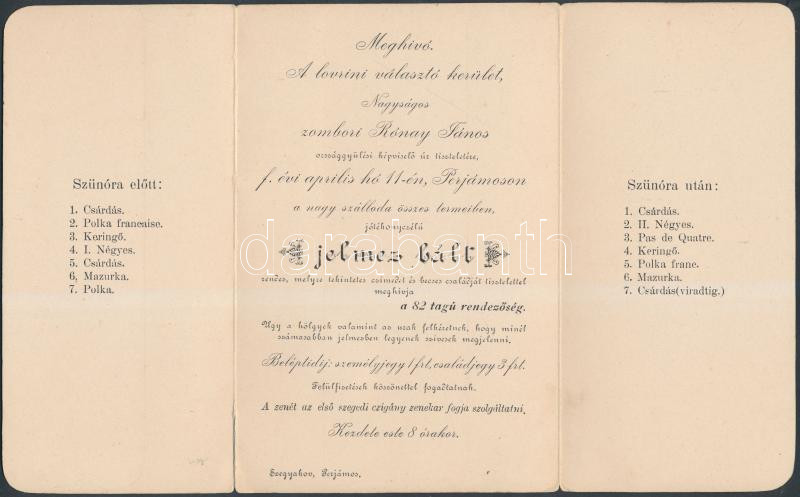 Szünóra előtt:
1. Csárdás.
2. Polka francaise.
3. Keringő.
4. I. Négyes.
5. Csárdás.
6, Mazurka.
7. Polka.
Meghivó.
A lovrini választó kerület,
Nagyságos
zombori Rónay János
országgyülési képviselő úr tiszteletére,
f. évi április hó 11-én, Perjámoson
a nagy szálloda összes termeiben,
jótékonyczélú
jelmez bált
rendez, melyre tekintetes czimedet és becses családját tisztelettel
meghívja
a 82 tagú rendezőség.
Ugy a hölgyek valamint az urak felkéretnek, hogy minél
számosabban jelmezben legyenek szivesek megjelenni.
Beléptidíj: személyjegy 1 frt, családjegy 3 frt.
Felülfizetések köszönettel fogadtatnak.
A zenét az első szegedi czigány zenekar fogja szolgáltatni.
Kezdete este 8 órakor.
Pirgyakov, Perjámos.
Szünóra után:
1. Csárdás.
2. II. Négyes.
3. Pas de Quatre.
4. Keringő.
5. Polka franc.
6. Mazurka.
7. Csárdás(viradtig.)
darabanth
.com